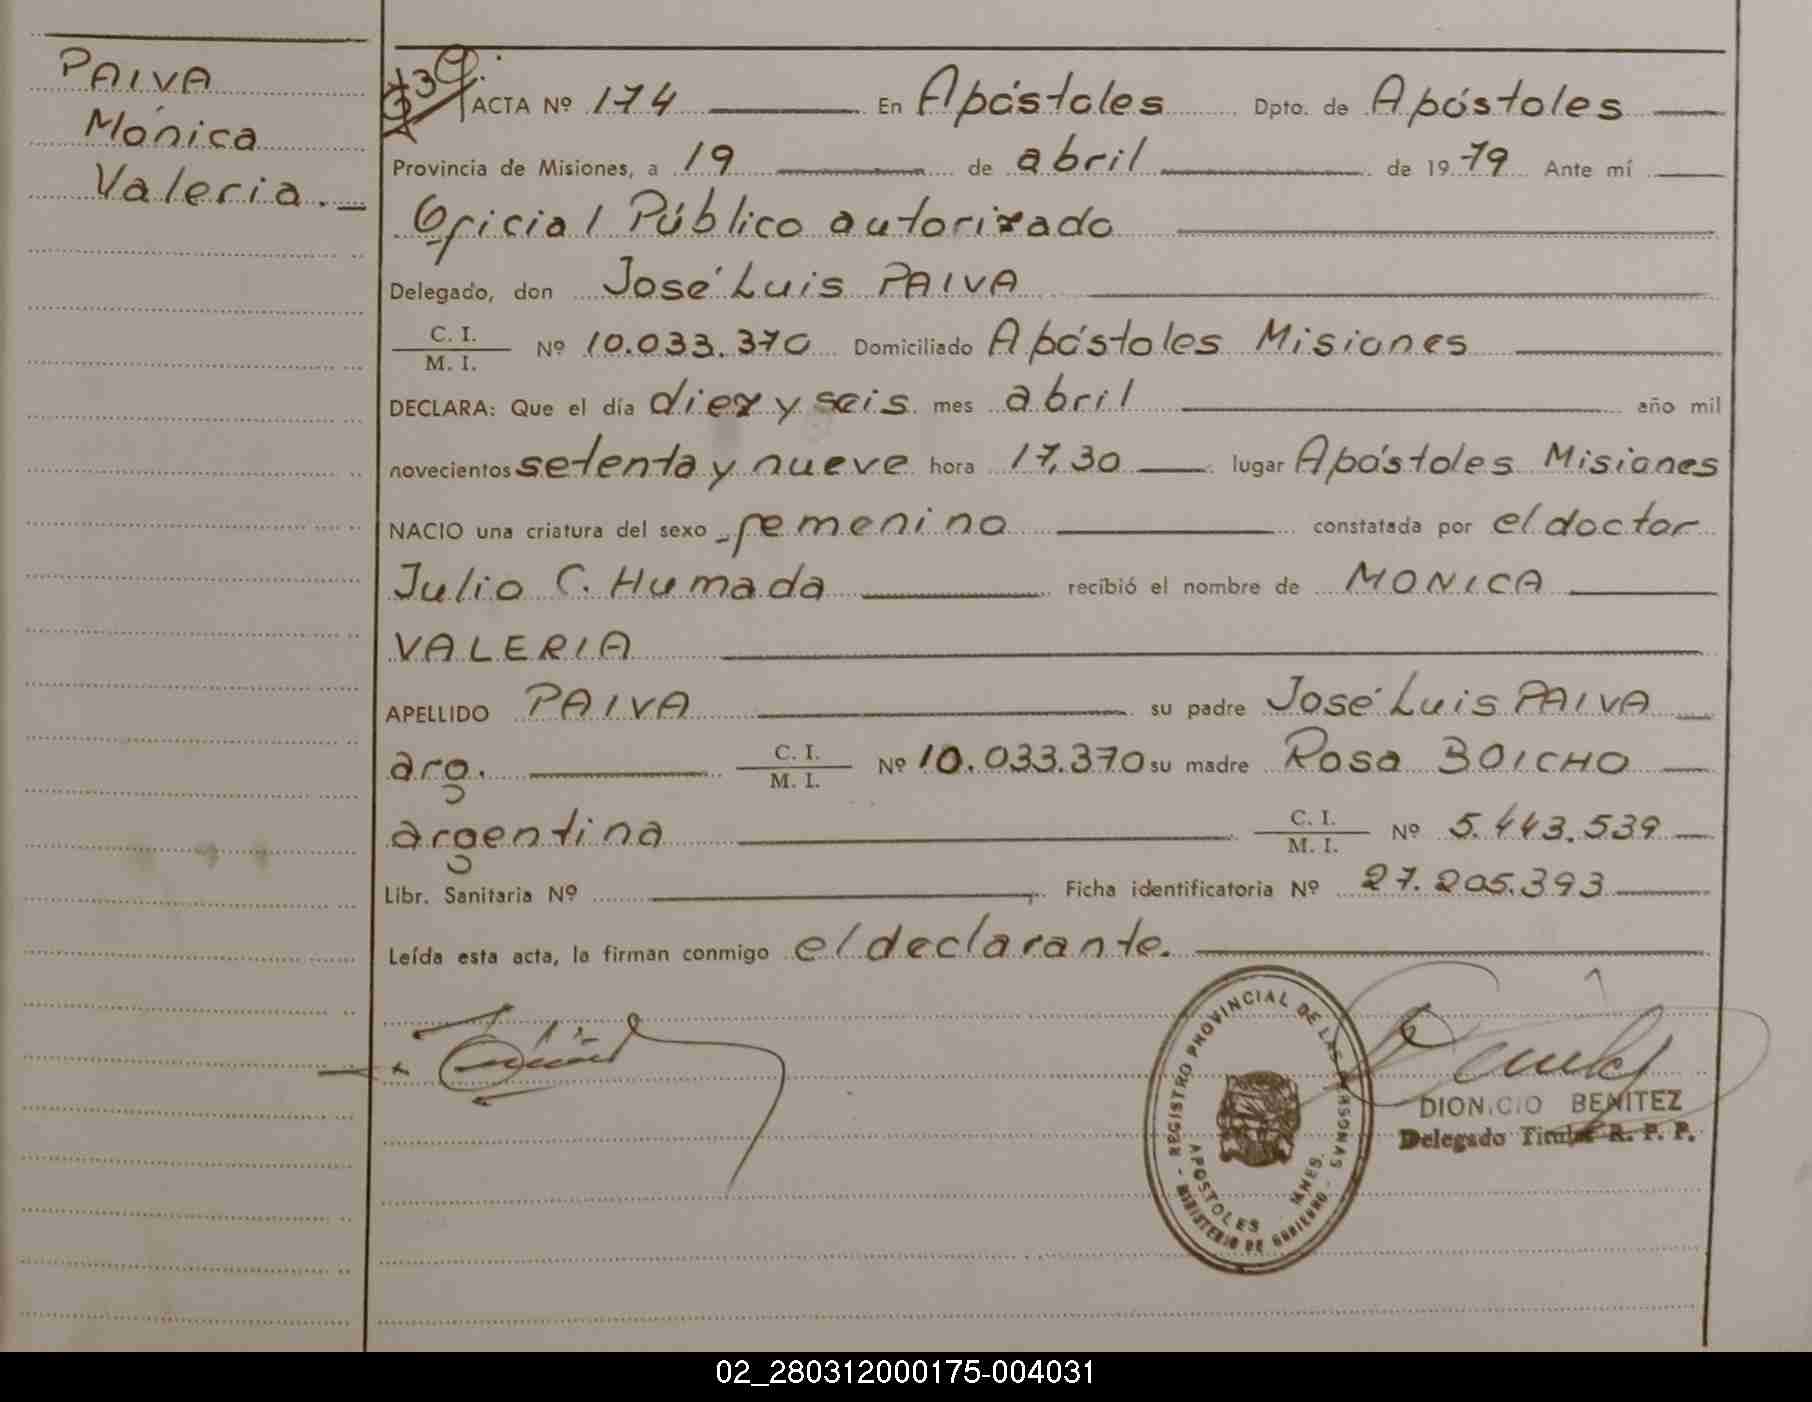 PAIVA
Mónica
Valeria.
ACTA Nº 174 En Apóstoles Dpto. de Apóstoles
Provincia de Misiones, a 19 de abril de 1979 Ante mí
Oficial Público autorizado
Delegado, don José Luis PAIVA
C. I.
M. I.
Nº 10.033.370 Domiciliado Apóstoles Misiones
DECLARA: Que el día diez y seis mes abril año mil
novecientos setenta y nueve hora 17,30 lugar Apóstoles Misiones
NACIO una criatura del sexo femenino constatada por el doctor
Julio C. Humada recibió el nombre de MONICA
VALERIA
APELLIDO PAIVA su padre José Luis PAIVA
arg. C. I.
M. I.
Nº 10.033.370 su madre Rosa BOICHO
argentina C. I.
M. I.
Nº 5.443.539
Libr. Sanitaria Nº Ficha identificatoria Nº 27.205.393
Leída esta acta, la firman conmigo el declarante.
REGISTRO PROVINCIAL DE LAS PERSONAS
APOSTOLES MNES.
MINISTERIO DE GOBIERNO
DIONICIO BENITEZ
Delegado Titular R. P. P.
02_280312000175-004031